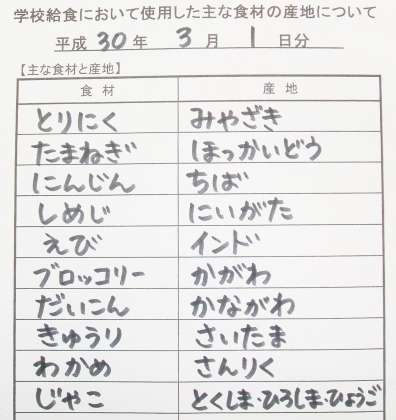 学校給食において使用した主な食材の産地について
平成 30 年 3 月 1 日分
【主な食材と産地】
食材 産地
とりにく みやざき
たまねぎ ほっかいどう
にんじん ちば
しめじ にいがた
えび インド
ブロッコリー かがわ
だいこん かながわ
きゅうり さいたま
わかめ さんりく
じゃこ とくしま・ひろしま・ひょうご